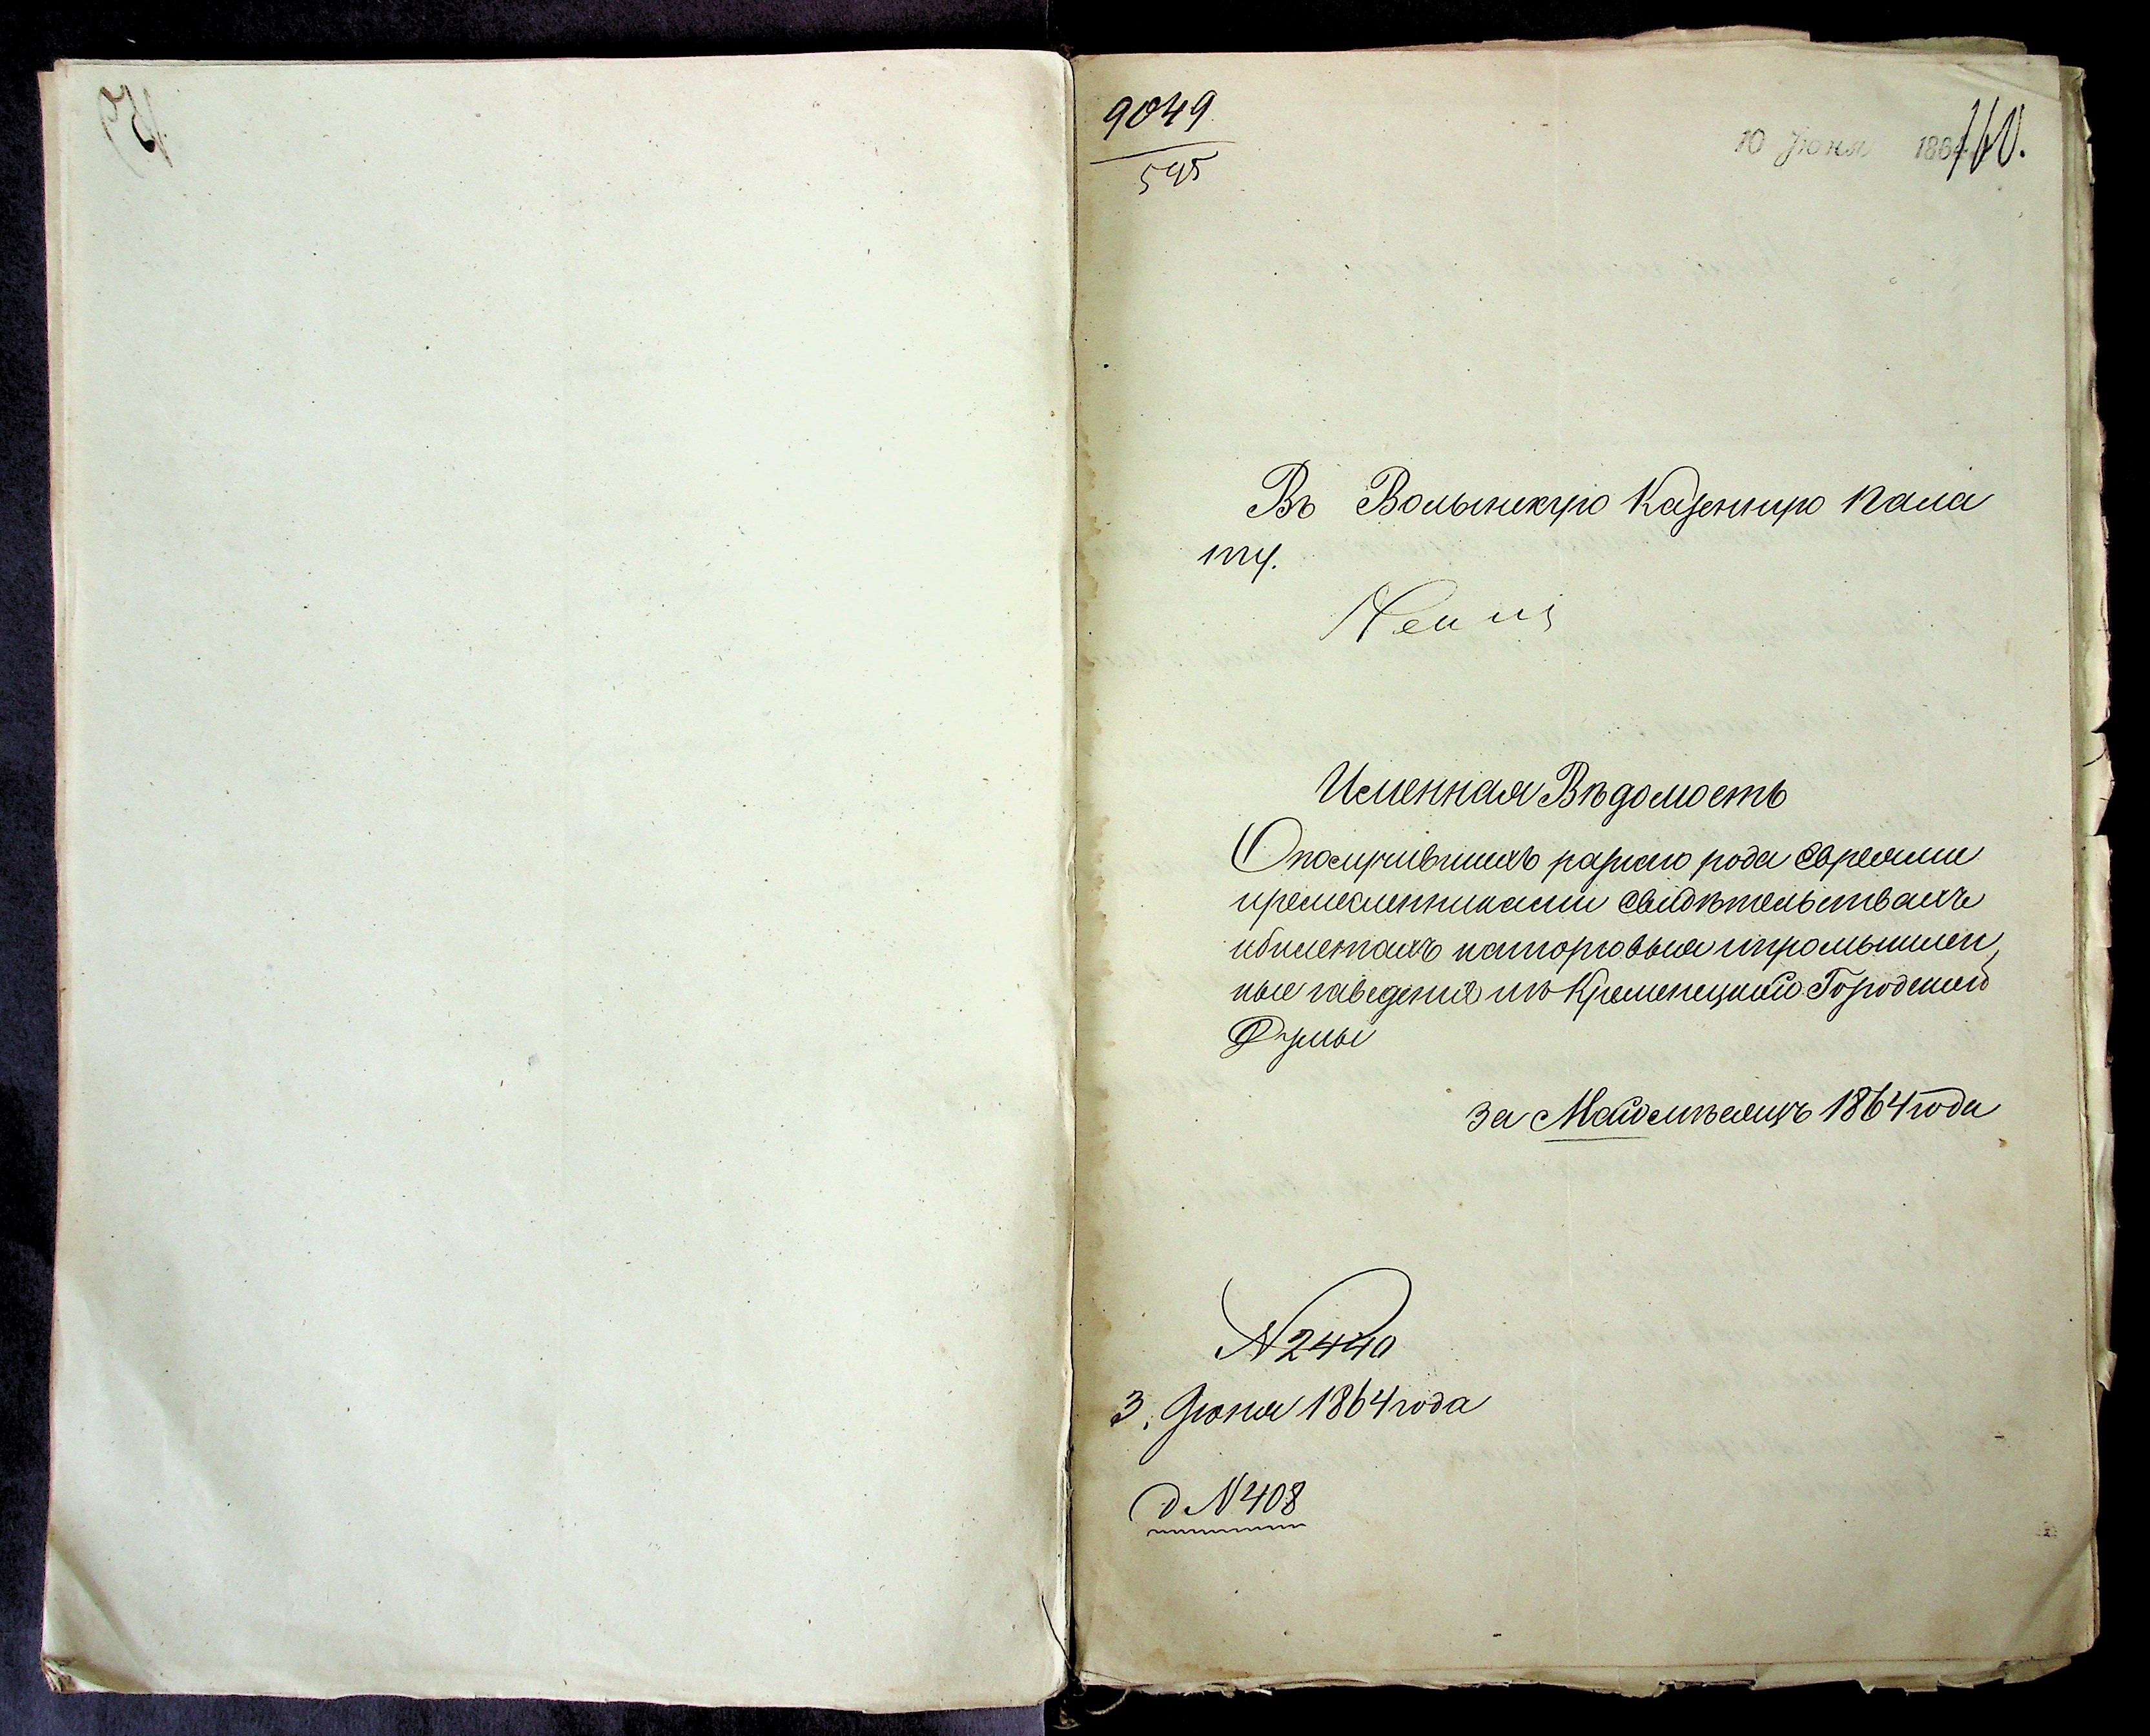 9049
545
10 Іюня 1864
160.
Въ Волынскую Казенную Пала
ту.
Именная Вѣдомость
О получившихъ разного рода Евреями
иремесленниками Свидѣтельствахъ
ибилетахъ наторговыя ипромышлен,
ные заведенія изъ Кременецкой Городской
Думы
за Маймѣсяцъ 1864 года
N 2440
3. Іюня 1864 года
д. N 408